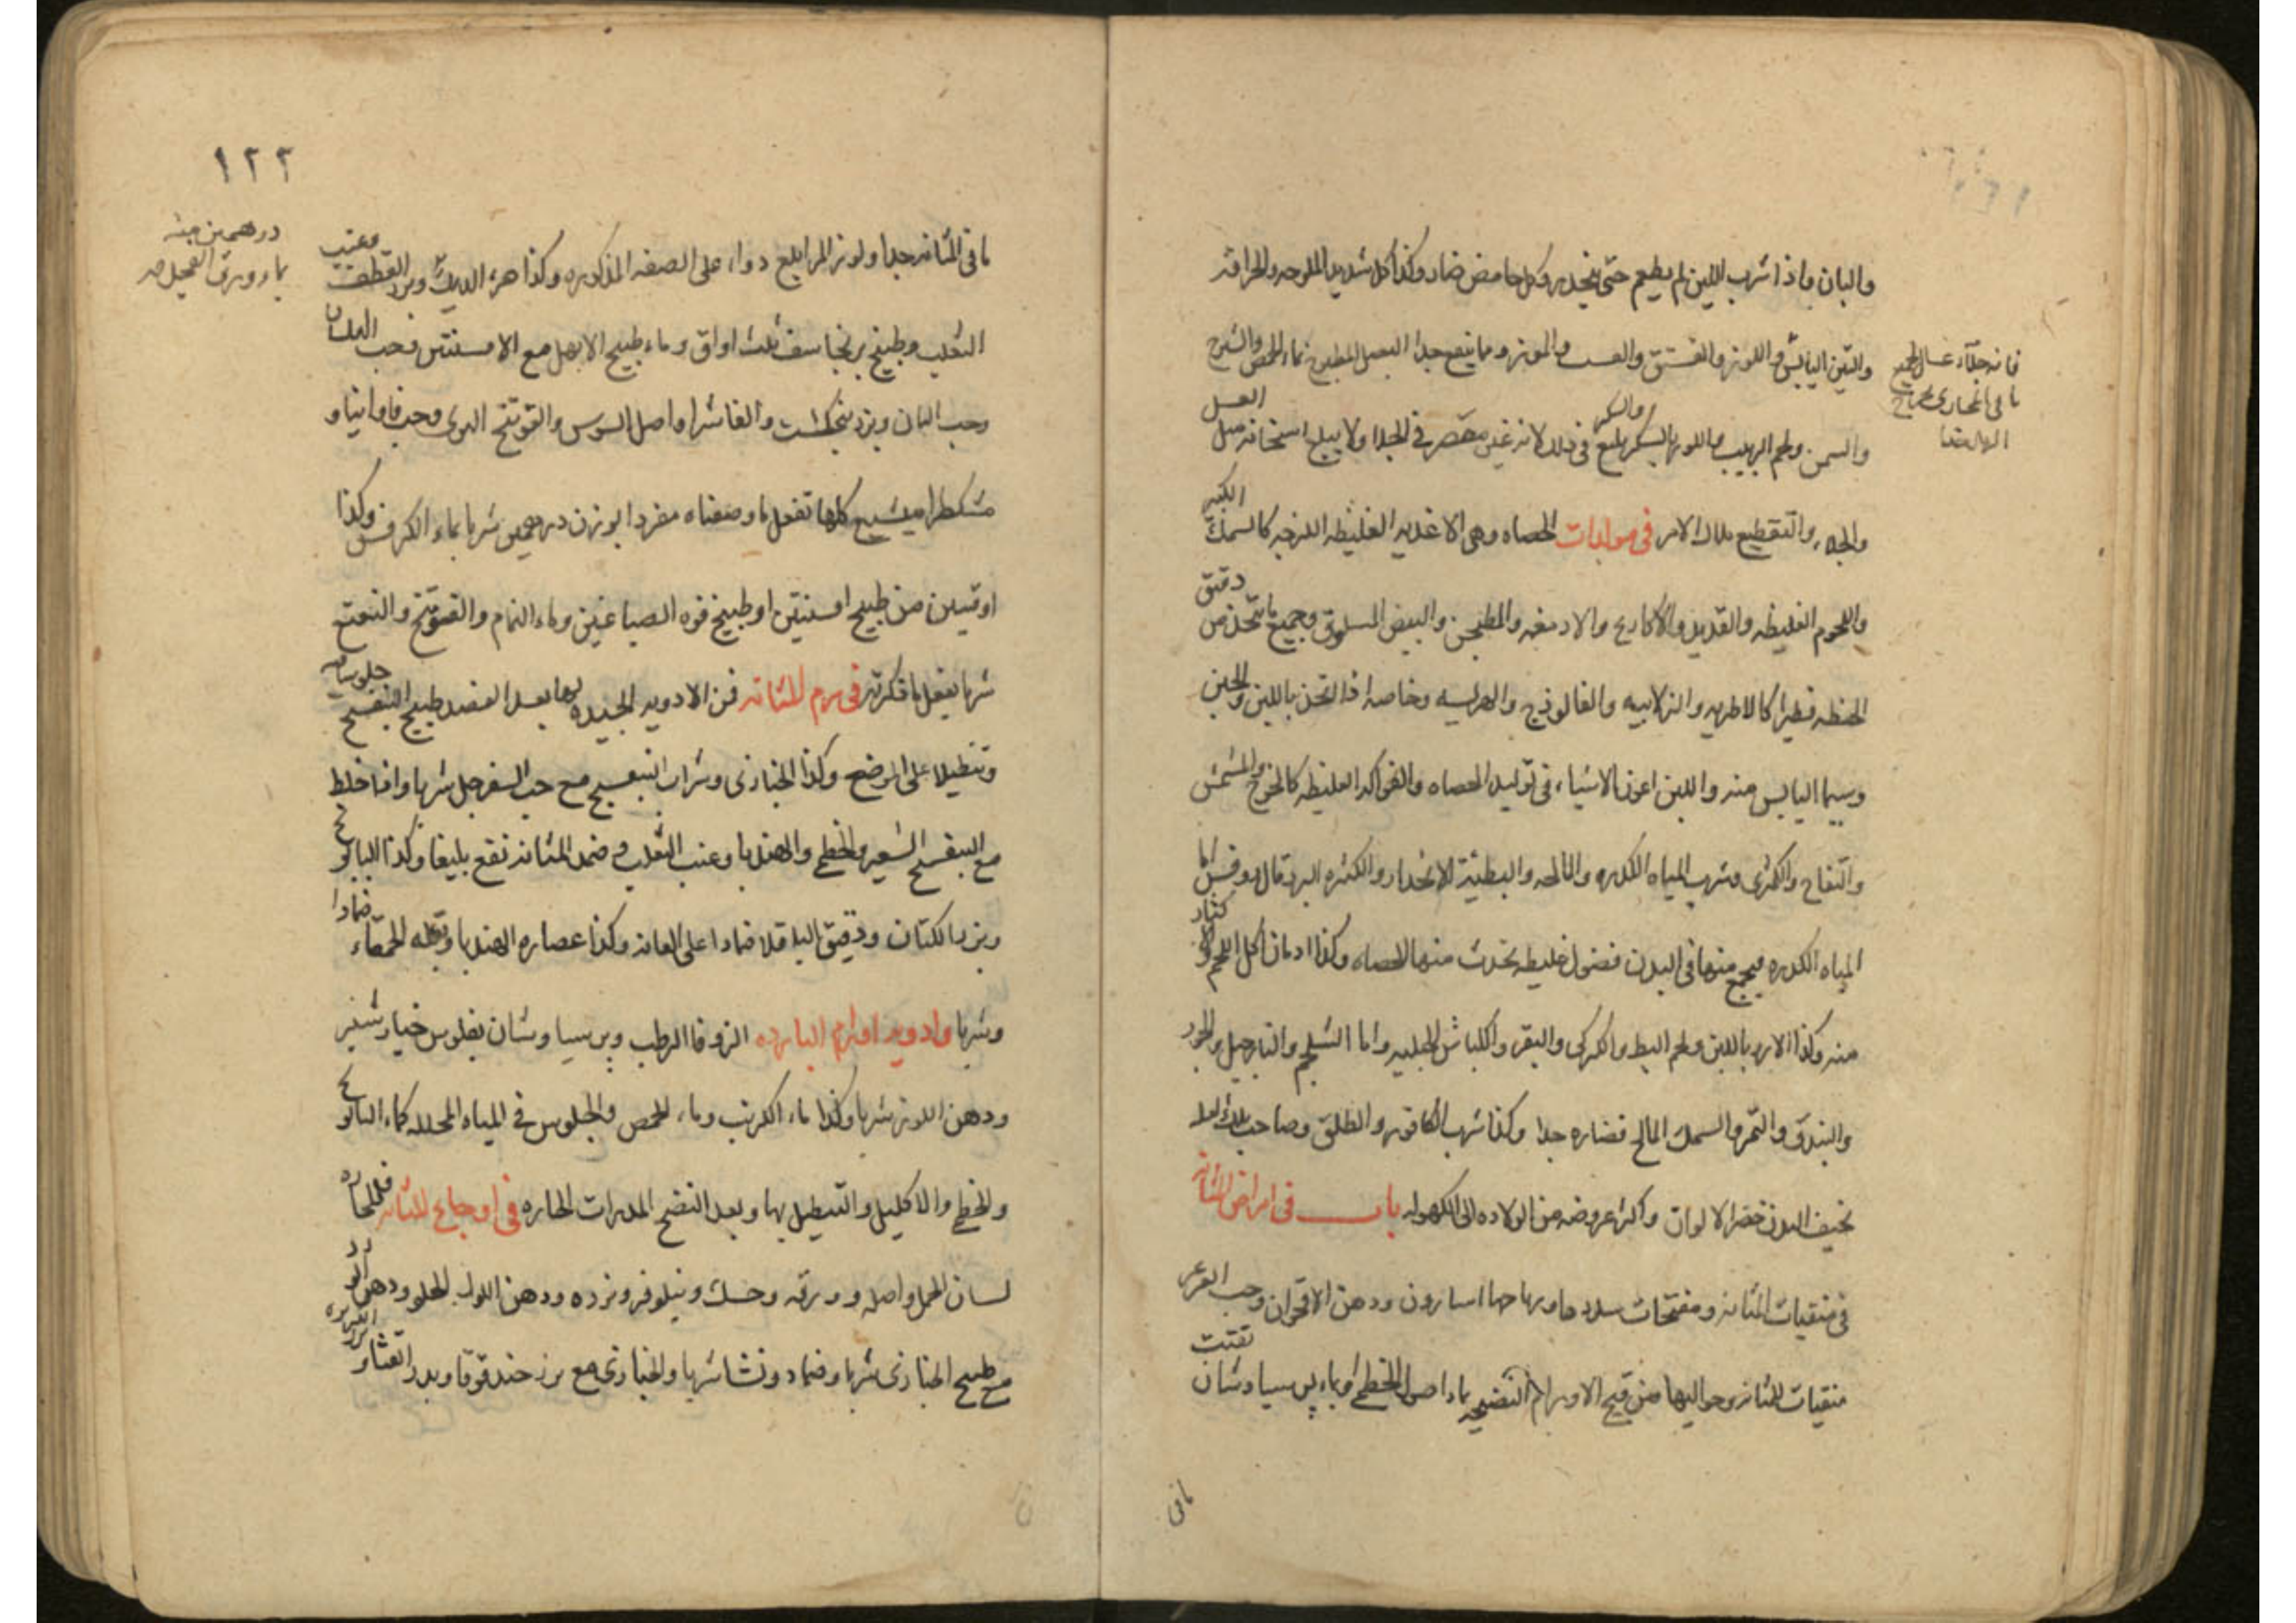 والبان واذا شرب اللبن لم يطعم حتى ينحدر وكل حامض ضار وكذا كل شديد الملوحه والحرافه
والتين اليابس واللوز والفستق والعسل والموز ومما ينفع جدا البصل المطبوخ بماء الحمص والشيرج
والسمن ولحم الربيب واللوز بالسكر بليغ في ذلك لانه غير مقصر في الجلا ولا يبلغ اسخانه مبلغ العسل
والسكر
والجلاء والتقطيع ملاك الامر في مولدات الحصاه وهى الاغذيه الغليظه اللزجه كالسمك الكبير
واللحوم الغليظه والقديد والاكارع والادمغه والمطجن والبيض المسلوق وجميع ما يتخذ من دقيق
الحنطه فطيرا كالاطريه والزلابيه والفالوذج والهريسه وخاصه اذا اتخذ باللبن والجبن
وسيما اليابس منه واللبن اعون الاشياء فى توليد الحصاه والفواكه الغليظه كالخوخ والمشمش
والتفاح والكمثرى وشرب المياه الكدره والمالحه والبطيئة الانحدار والكثيره البرد قال روفس اما
المياه الكدره فيجمع منها فى البدن فضول غليظه تحدث منها الحصاه وكذا ادمان اكل اللحم والاكثار
منه وكذا الارز باللبن ولحم البط والكركى والبقر والكباش الجبليه واما الشلجم والنارجيل والجوز
والبندق والتمر والسمك المالح فضاره جدا وكذا شرب الكافور والطلق وصاحب تلك العله
نحيف البدن خضر الالوان واكثر عروضه من الولاده الى الكهوله باب فى امراض المثانه
فى منقيات المثانه ومفتحات سددها ورياحها اسارون ودهن الاقحوان وحب العرعر
منقيات المثانه وحواليها من قيح الاورام النضيجه ماء اصول الخطمى او ماء برسياوشان تفتت
ما فى
فانه جلاء غسال
ما فى المجارى
١٢٢
ما فى المثانه جدا ولوز المر ابلغ دواء على الصفه المذكوره وكذا هرء الديك وبزر القطف وعنب
الثعلب وطبيخ برنجاسف ثلث اواق وماء طبيخ الابهل مع الافسنتين وحب البلسان
وحب البان وبزر بنجنكشت والفاشرا واصل السوس والفوتنج البرى وحب فاوانيا و
مشكطرامشيع كلها تفعل ما وصفناه مفردا بوزن درهمين شربا بماء الكرفس وكذا
اوقيتين من طبيخ افسنتين او طبيخ فوه الصباغين وماء النمام والفوتنج والنعنع
شربا يفعل ما ذكرته فى ورم المثانه فمن الادويه الجيده لها بعد الفصد طبيخ البنفسج جلوسا فيه
وتنطيلا على الموضع وكذا الخبازى وشراب البنفسج مع حب السفرجل شربا واذا خلط
مع البنفسج الشعير والخطمى والهندبا وعنب الثعلب وضمد المثانه نفع بليغا وكذا البابونج
وبزر الكتان ودقيق الباقلا ضمادا على العانه وكذا عصاره الهندبا وبقله الحمقاء ضمادا
وشربا وادويه اورام البارده الزوفا الرطب وبرسياوشان بفلوس خيارشنبر
ودهن اللوز شربا وكذا ماء الكرنب وماء الحمص والجلوس فى المياه المحلله كماء البابونج
والخطمى والاكليل والتنطيل بها وبعد النضج المدرات الحاره فى اوجاع المثانه فللحاره
لسان الحمل واصله وورقه وحسك ونيلوفر وبزره ودهن اللوز الحلو ودهن الورد
مع طبيخ الخبازى شربا وضماد ونشا شربا والخبازى مع بزر حندقوقا وبزر القثاء و
درهمين منه
بماء ورق الفجل صح